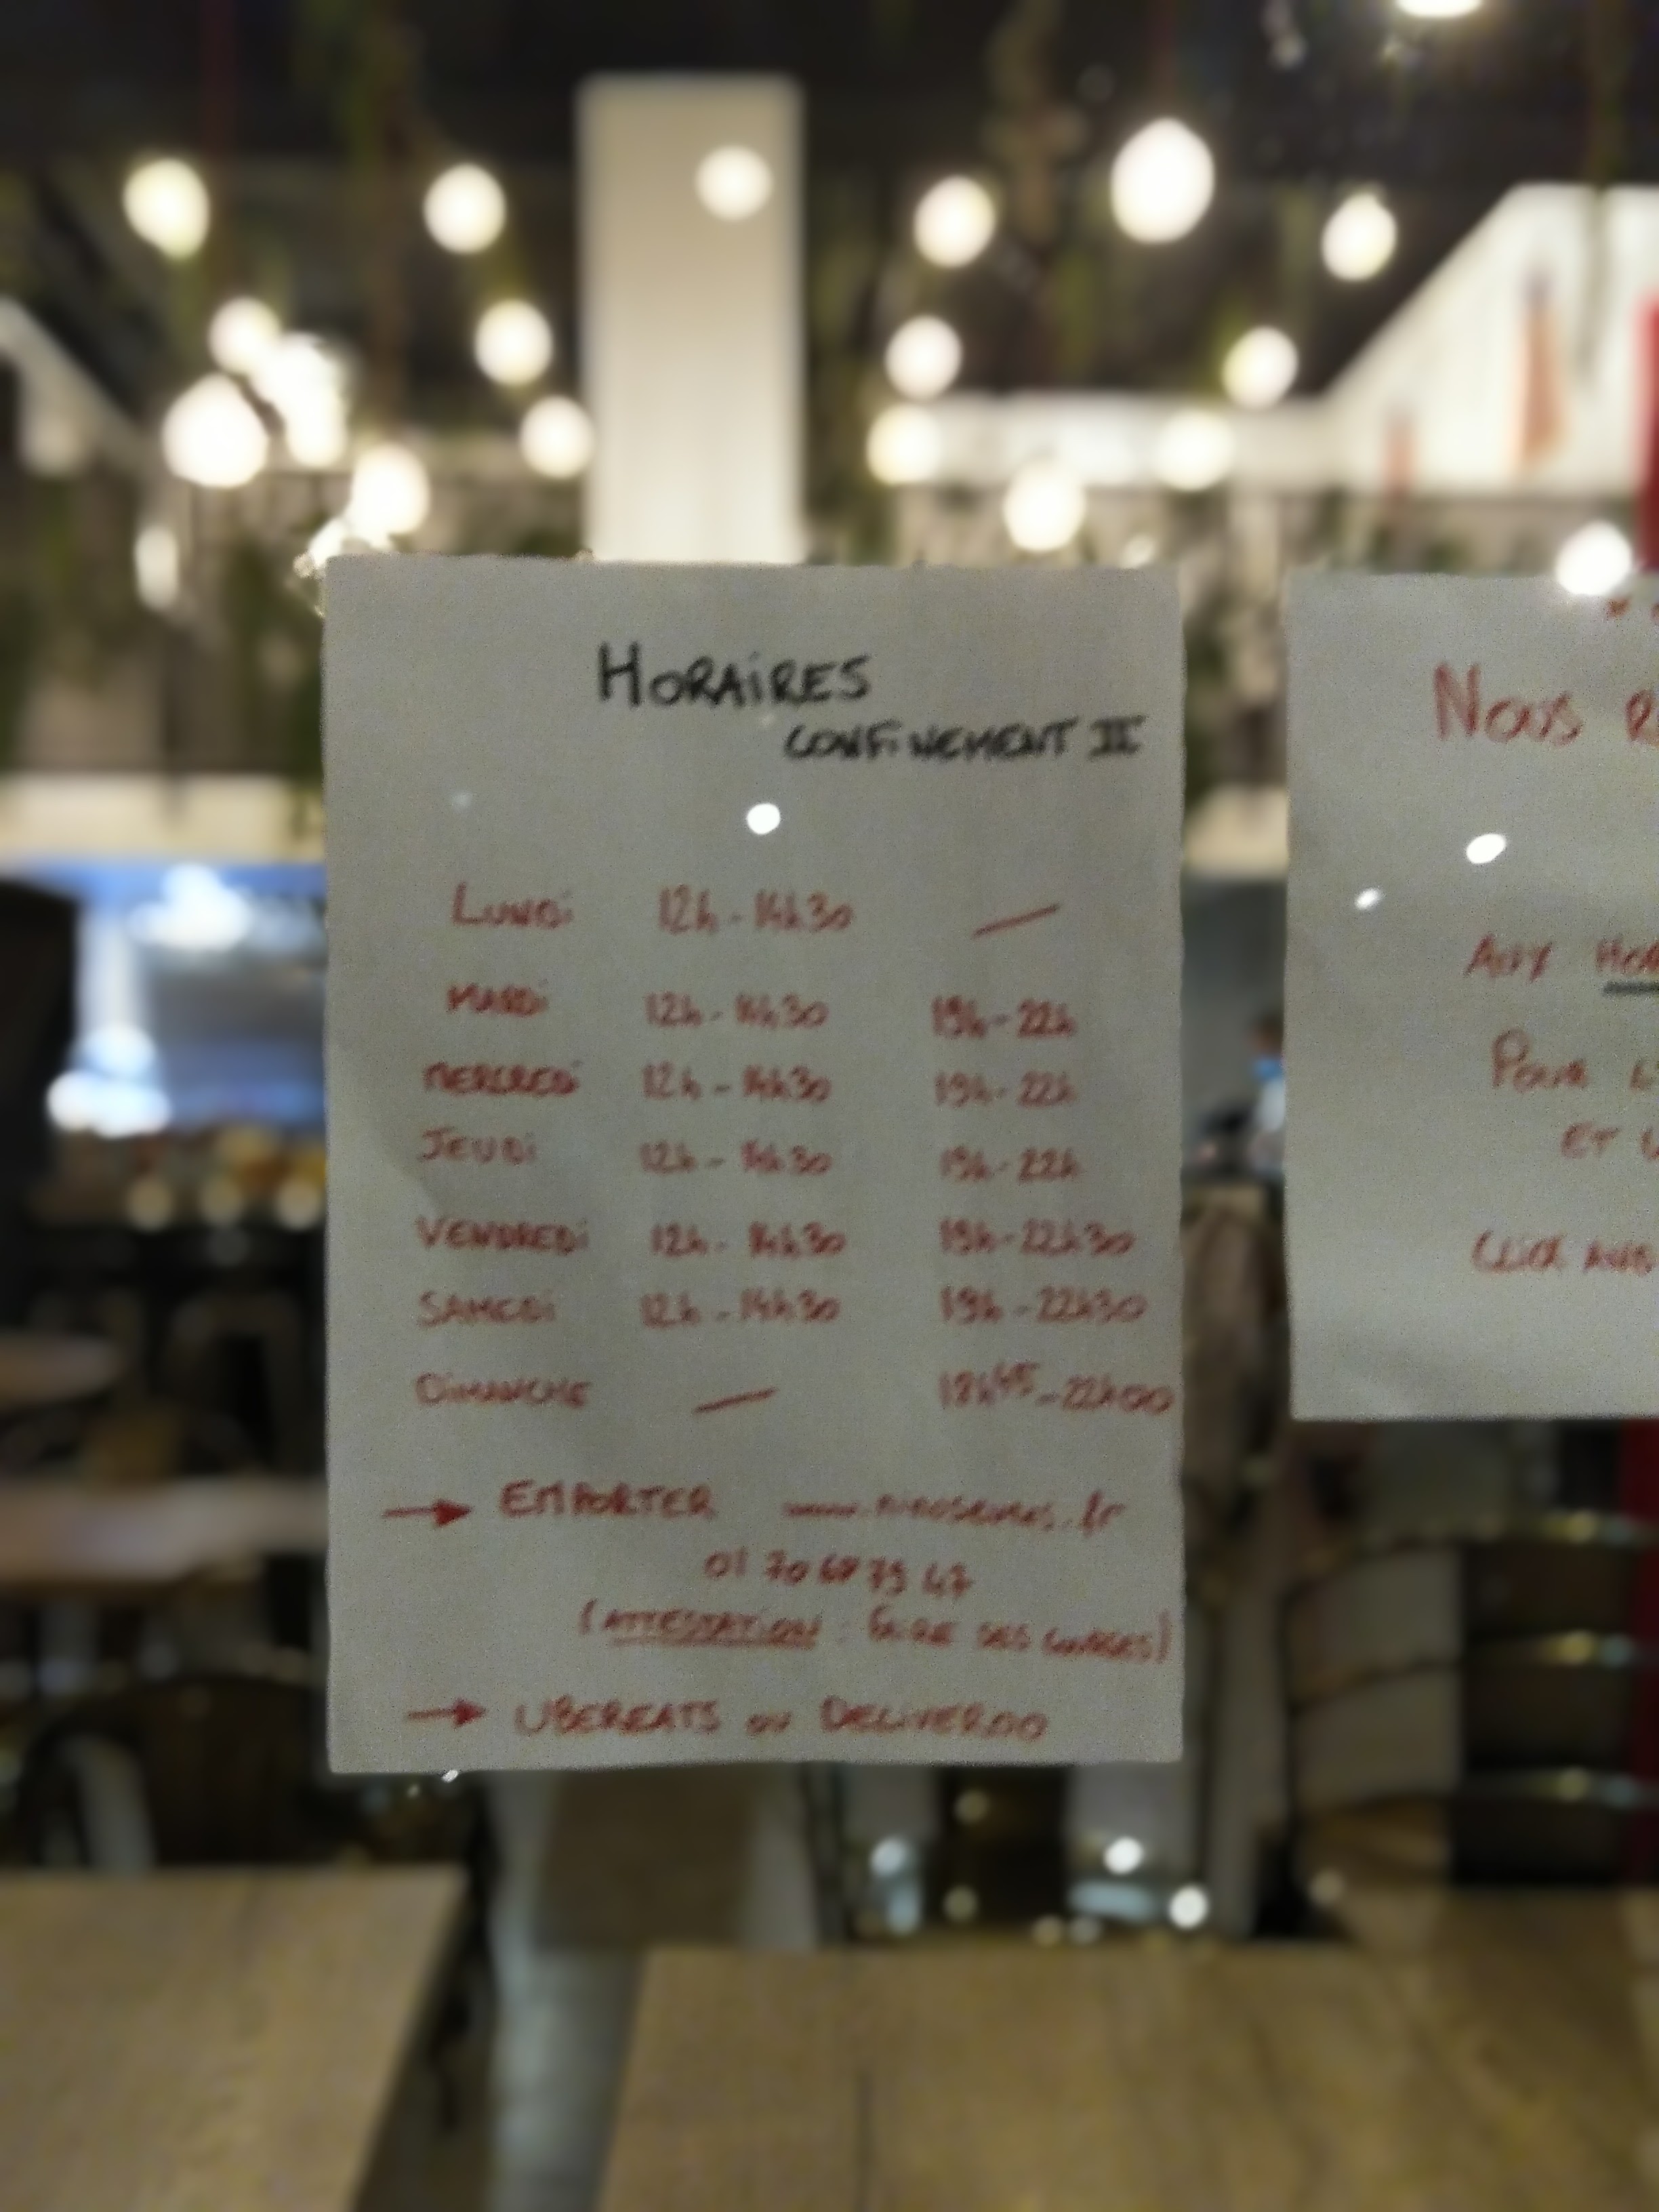 HORAIRES
CONFINEMENT III
LUNDI 12h - 14h30 —
MARDI 12h - 14h30 19h - 22h
MERCREDI 12h - 14h30 19h - 22h
JEUDI 12h - 14h30 19h - 22h
VENDREDI 12h - 14h30 19h - 22h30
SAMEDI 12h - 14h30 19h - 22h30
DIMANCHE — 18h45 - 22h00
→ EMPORTER
01 70 68 79 47
(ATTESTATION : FAIRE DES COURSES)
→ UBEREATS ou DELIVEROO
NOUS
AUX
POUR
ET
CLICK AND